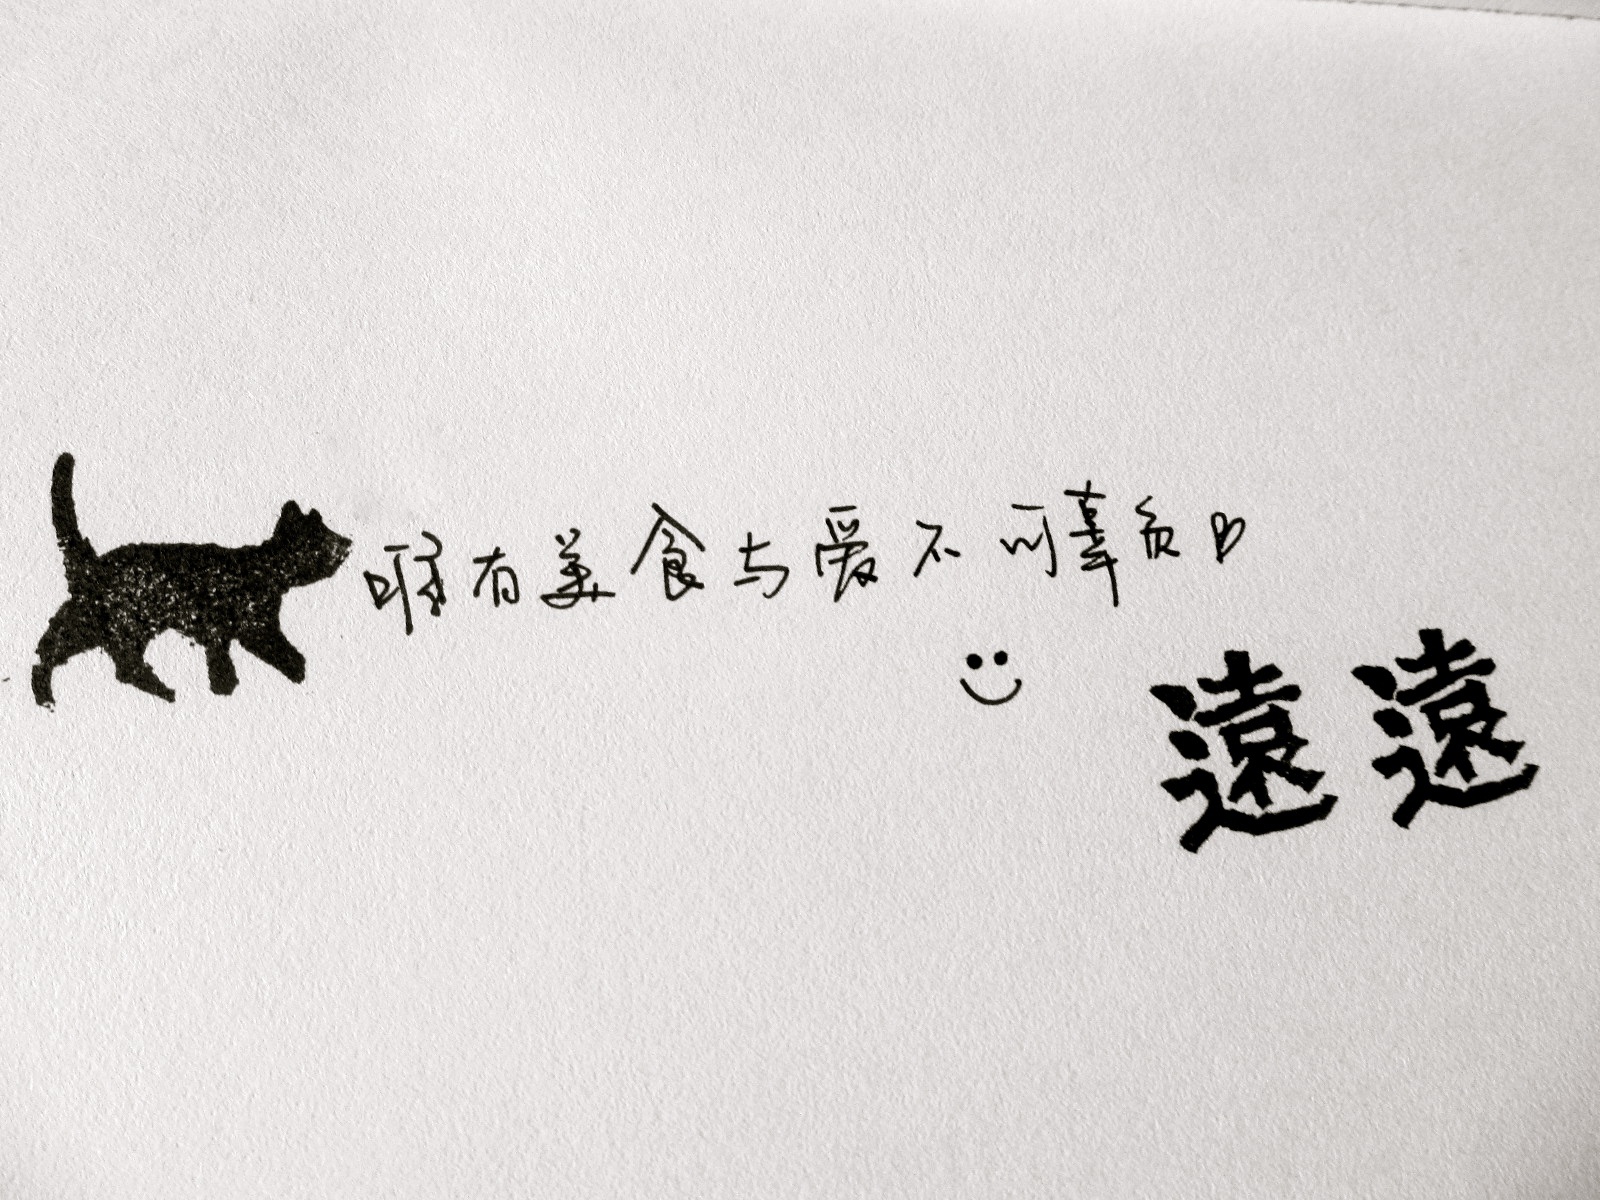 唯有美食与爱不可辜负
遠遠